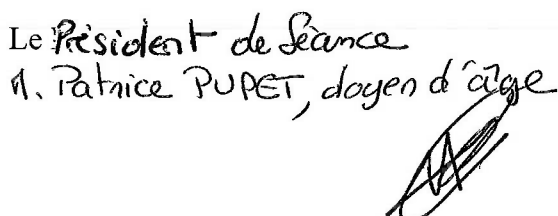 Le Président de Séance
M. Patrice PUPET, doyen d'âge